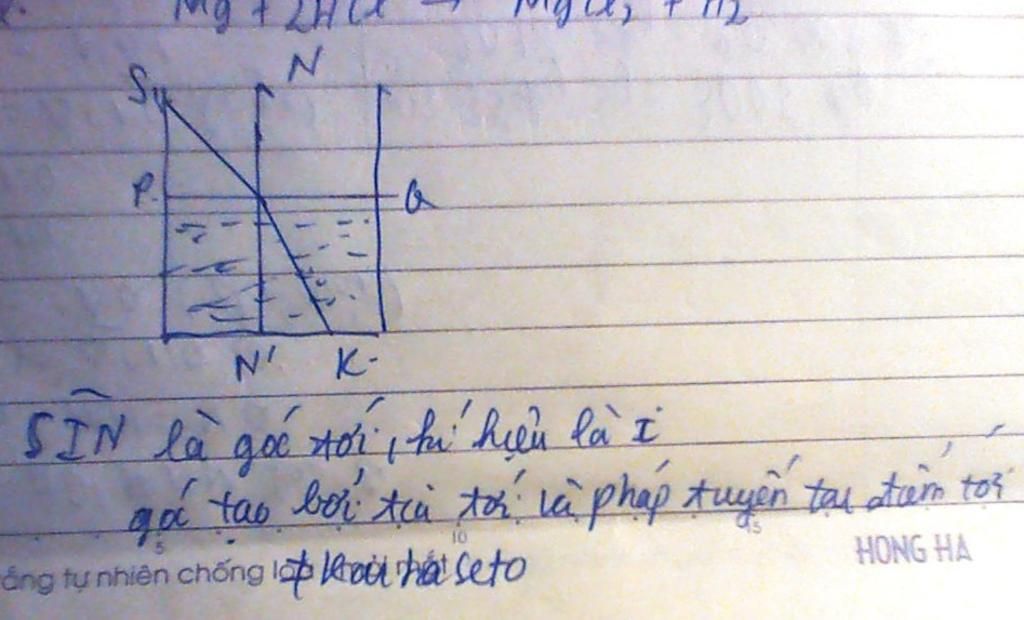 Mg + 2HCl → MgCl₂ + H₂
S
N
P.
Q
N'
K.
SIN là góc tới, kí hiệu là i
góc tạo bởi tia tới và pháp tuyến tại điểm tới
5 10 15
HONG HA
ắng tự nhiên chống l